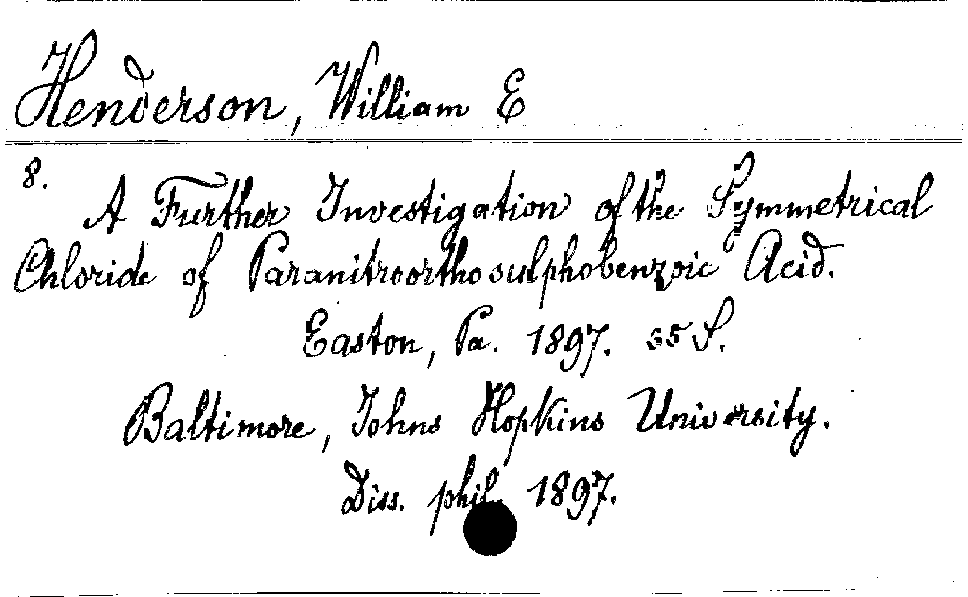 Henderson, William E
8.
A Further Investigation of the Symmetrical
Chloride of Paranitroorthosulphobenzoic Acid.
Easton, Pa. 1897. 35 S.
Baltimore, Johns Hopkins University.
Diss. phil. 1897.